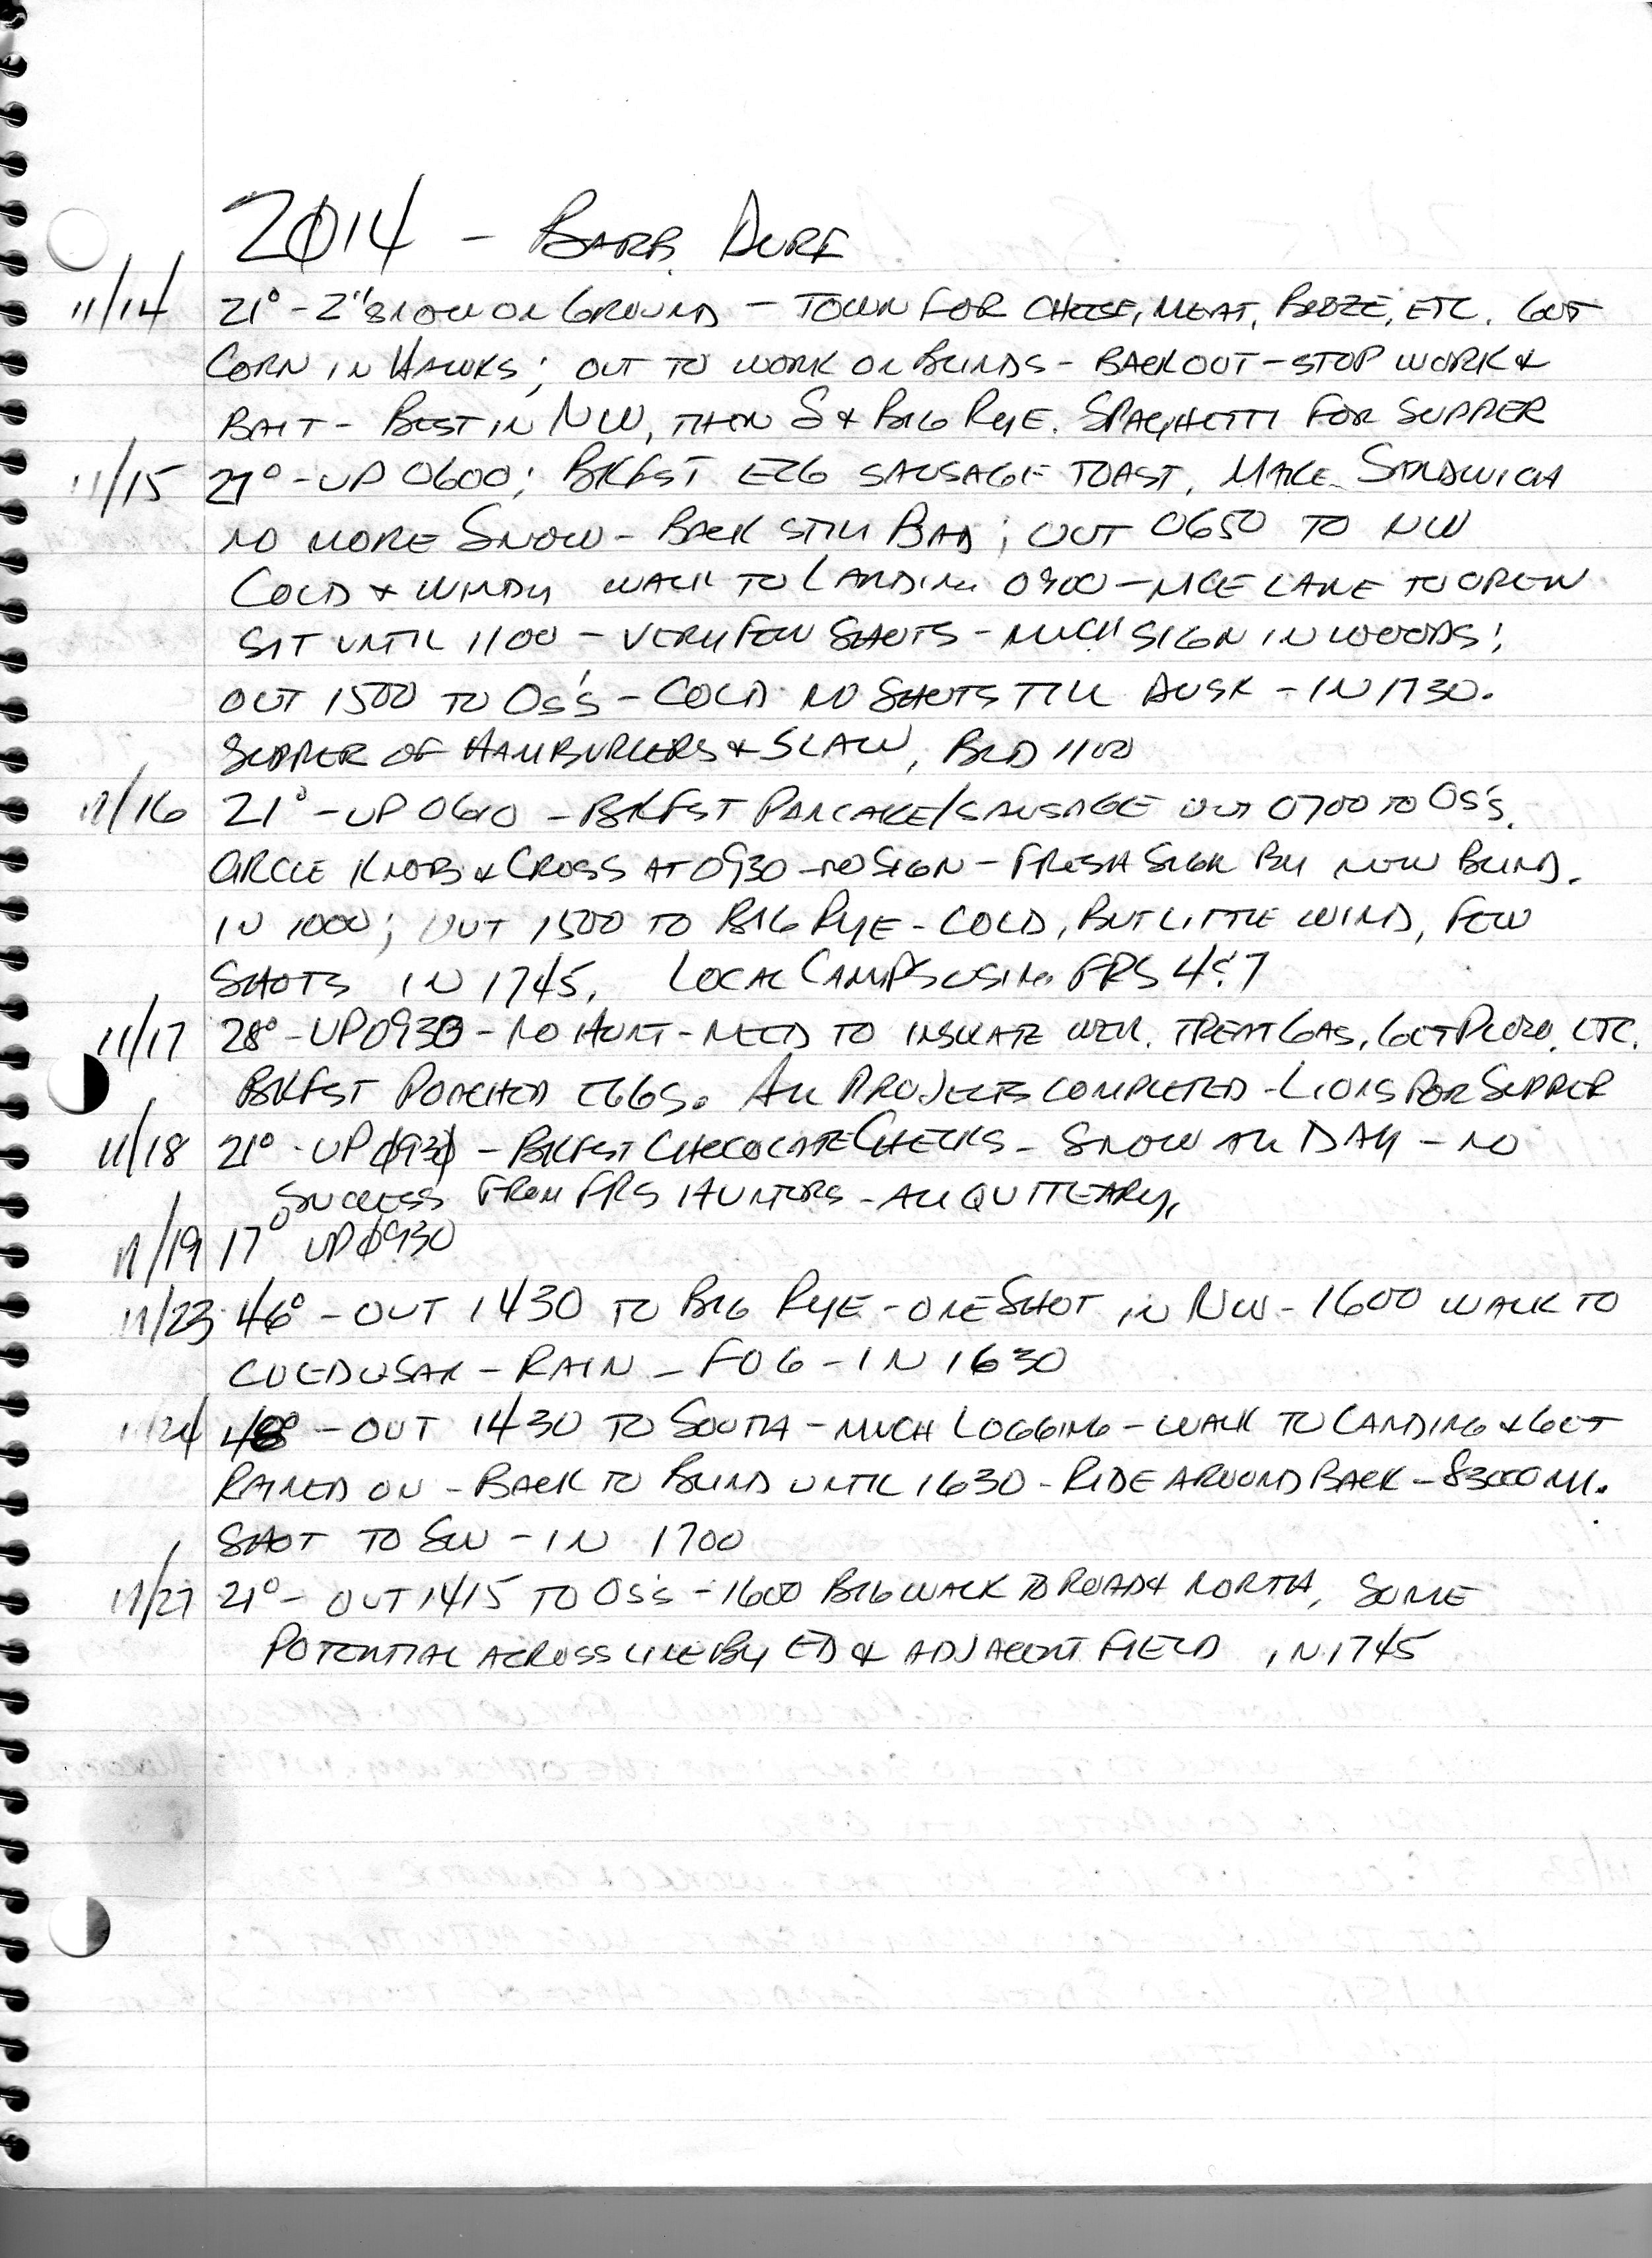 2014 - BARB, DURF
11/14 21° - 2" SNOW ON GROUND - TOWN FOR CHEESE, MEAT, BOOZE, ETC. GET
CORN IN HAWKS; OUT TO WORK ON BLINDS - BACK OUT - STOP WORK &
BAIT - BEST IN NW, THEN S & BIG RYE. SPAGHETTI FOR SUPPER
11/15 21° - UP 0600; BKFST EGG SAUSAGE TOAST, MAKE SANDWICH
NO MORE SNOW - BACK STILL BAD; OUT 0650 TO NW
COLD & WINDY WALK TO LANDING 0900 - NICE LANE TO OPEN
SIT UNTIL 1100 - VERY FEW SHOTS - MUCH SIGN IN WOODS;
OUT 1500 TO OS'S - COLD NO SHOTS TILL DUSK - IN 1730.
SUPPER OF HAMBURGERS & SLAW, BED 1100
11/16 21° - UP 0610 - BKFST PANCAKE/SAUSAGE OUT 0700 TO OS'S.
CIRCLE KNOB & CROSS AT 0930 - NO SIGN - FRESH SIGN BY NEW BLIND.
IN 1000; OUT 1500 TO BIG RYE - COLD, BUT LITTLE WIND, FEW
SHOTS IN 1745. LOCAL CAMPS USING FRS 4 & 7
11/17 28° - UP 0930 - NO HUNT - NEED TO INSULATE WELL, TREAT GAS, GET PLOW, ETC.
BKFST POACHED EGGS. ALL PROJECTS COMPLETED - LIONS FOR SUPPER
11/18 21° - UP 0930 - BKFST CHOCOLATE CHECKS - SNOW ALL DAY - NO
SUCCESS FROM FRS HUNTERS - ALL QUIT EARLY.
11/19 17° UP 0930
11/23 46° - OUT 1430 TO BIG RYE - ONE SHOT IN NW - 1600 WALK TO
- RAIN - FOG - IN 1630
11/24 48° - OUT 1430 TO SOUTH - MUCH LOGGING - WALK TO LANDING & GET
RAINED ON - BACK TO BLIND UNTIL 1630 - RIDE AROUND BACK - 83000 MI.
SHOT TO SW - IN 1700
11/27 21° - OUT 1415 TO OS'S - 1600 BIG WALK TO ROAD & NORTH, SOME
POTENTIAL ACROSS LINE BY ED & ADJACENT FIELD IN 1745